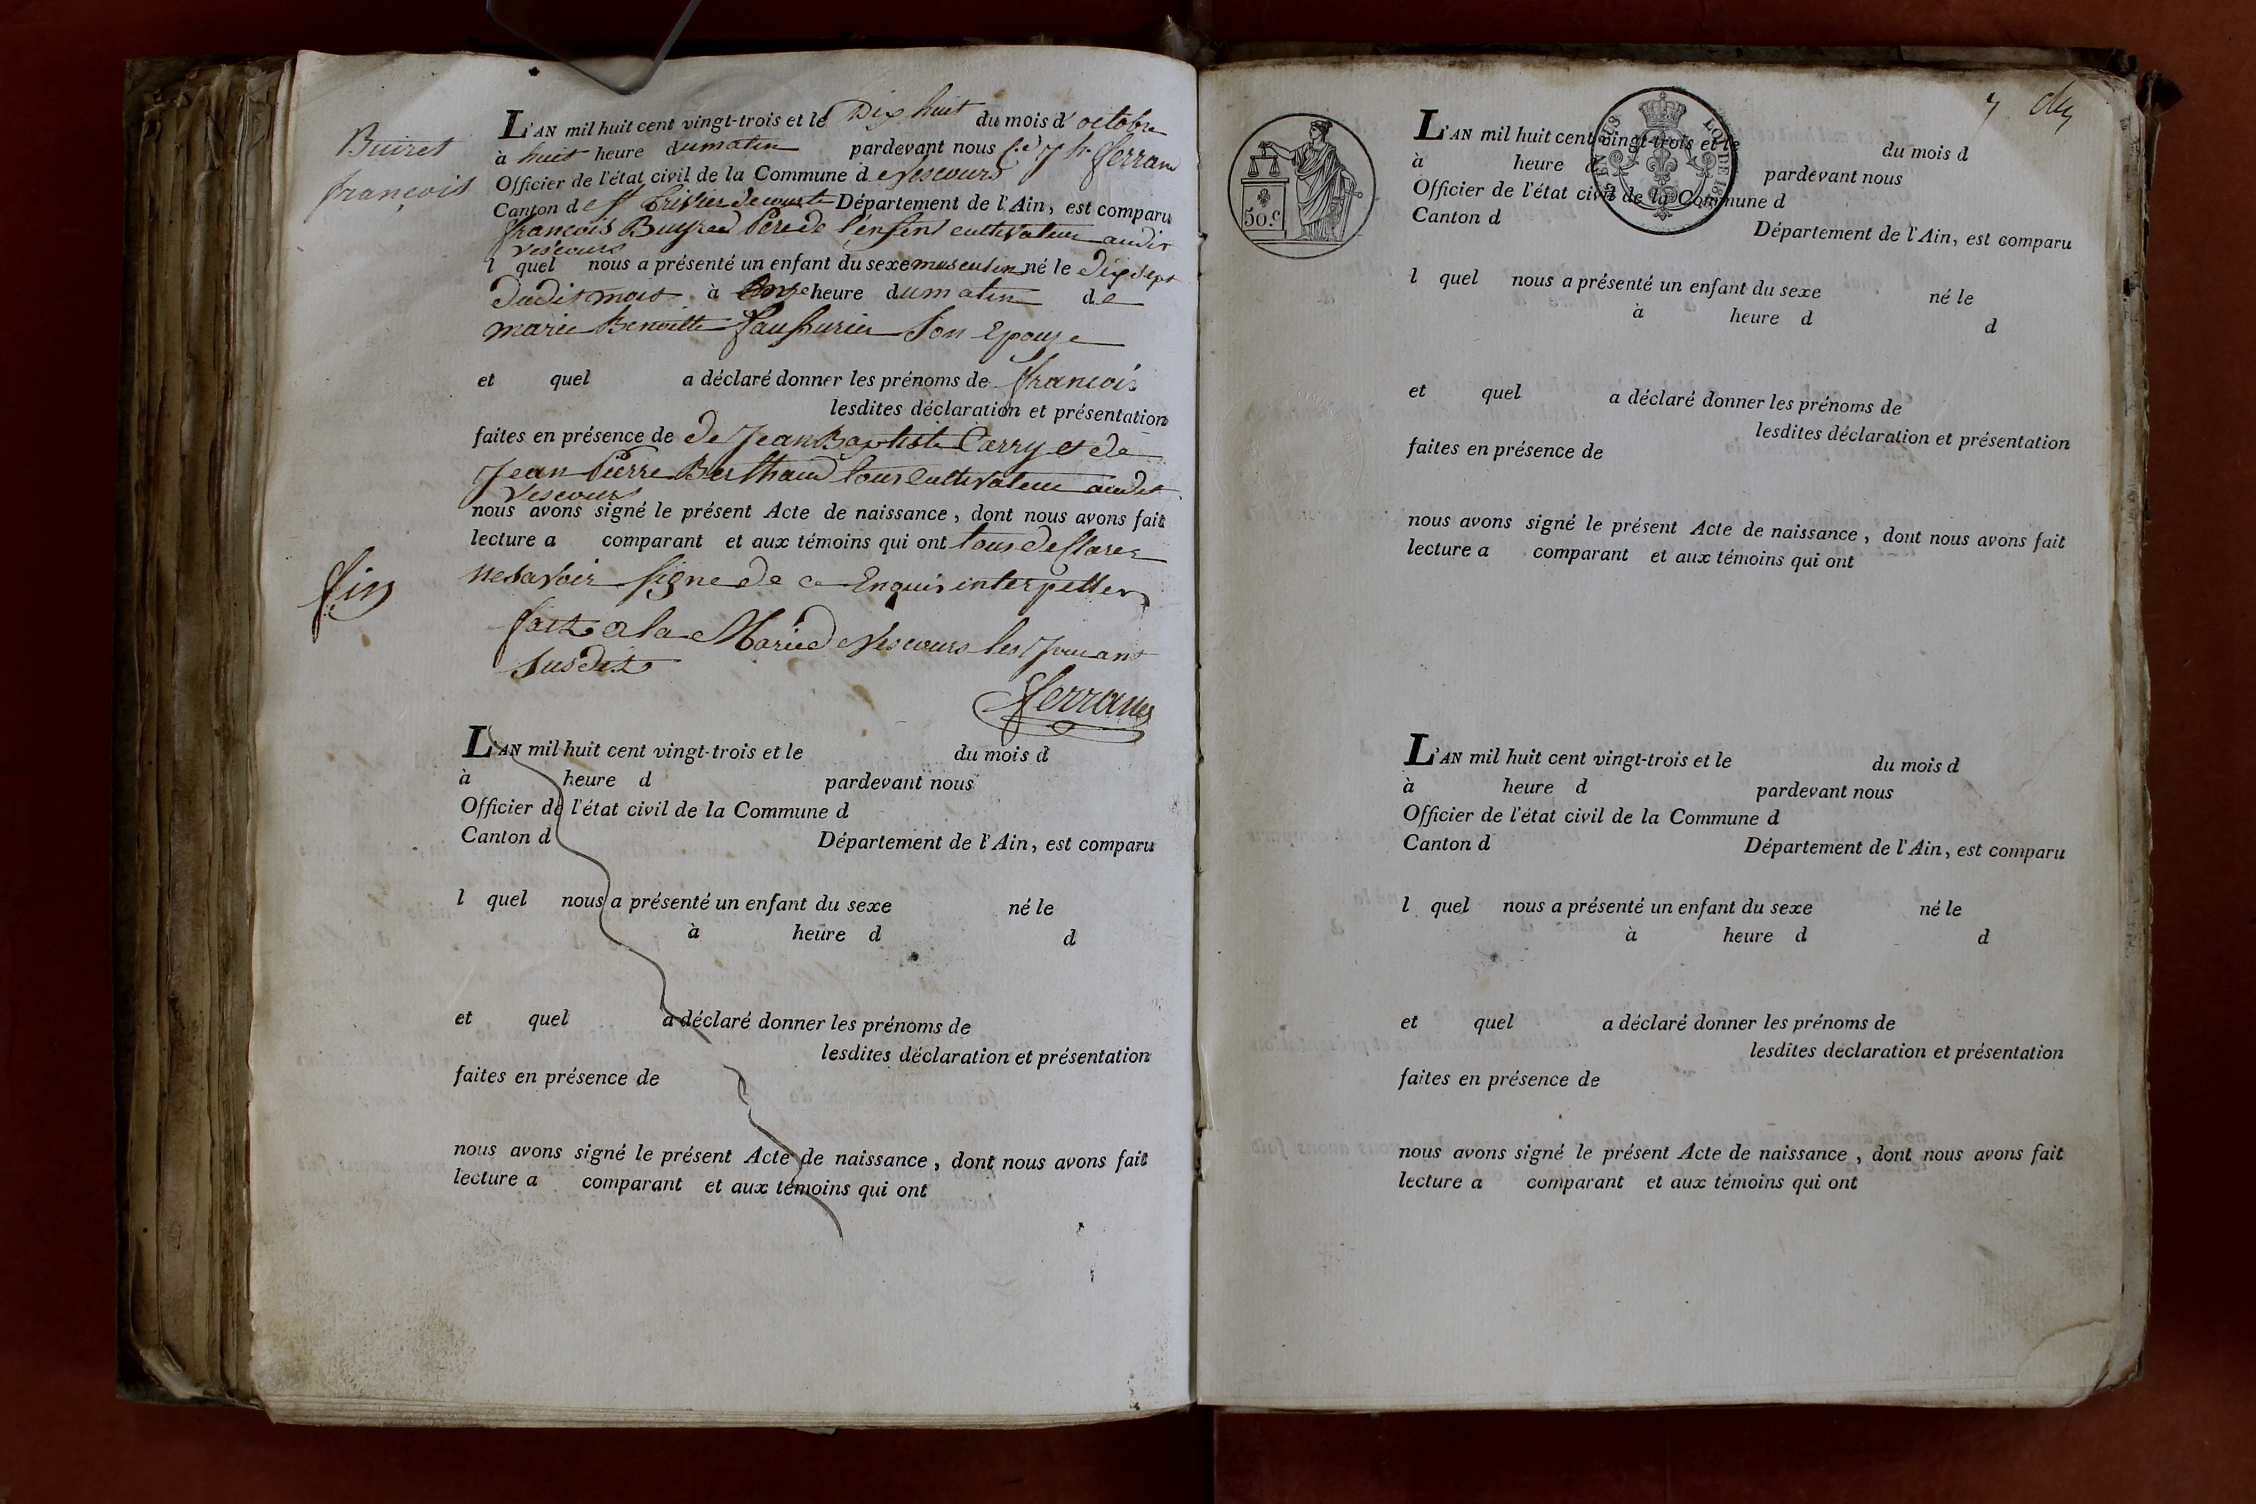 Buiret
françois
L'AN mil huit cent vingt-trois et le Dix huit du mois d'octobre
à huit heure du matin pardevant nous Ferrand
Officier de l'état civil de la Commune de Vescours
Canton de St trivier de courte Département de l'Ain, est comparu
françois Buyred Père de l'enfent cultivateur audit
vescours
l quel nous a présenté un enfant du sexe masculin né le dix sept
dudit mois à onze heure du matin de
marie Benoitte son Epouse
et quel a déclaré donner les prénoms de françois
lesdites déclaration et présentation
faites en présence de de Jean Baptiste Carry et de
Jean Pierre Berthaud tous cultivateur audit
vescours
nous avons signé le présent Acte de naissance, dont nous avons fait
lecture a comparant et aux témoins qui ont tous desclarer
ne savoir signe de ce Enquis interpeller
fin
fait a la Marie de Vescours les Jour ans
susdit
Ferrand
L'AN mil huit cent vingt-trois et le du mois d
à heure d pardevant nous
Officier de l'état civil de la Commune d
Canton d Département de l'Ain, est comparu
l quel nous a présenté un enfant du sexe né le
à heure d d
et quel a déclaré donner les prénoms de
lesdites déclaration et présentation
faites en présence de
nous avons signé le présent Acte de naissance, dont nous avons fait
lecture a comparant et aux témoins qui ont
50.c
7
L'AN mil huit cent vingt-trois et le du mois d
à heure d pardevant nous
Officier de l'état civil de la Commune d
Canton d Département de l'Ain, est comparu
l quel nous a présenté un enfant du sexe né le
à heure d d
et quel a déclaré donner les prénoms de
lesdites déclaration et présentation
faites en présence de
nous avons signé le présent Acte de naissance, dont nous avons fait
lecture a comparant et aux témoins qui ont
L'AN mil huit cent vingt-trois et le du mois d
à heure d pardevant nous
Officier de l'état civil de la Commune d
Canton d Département de l'Ain, est comparu
l quel nous a présenté un enfant du sexe né le
à heure d d
et quel a déclaré donner les prénoms de
lesdites declaration et présentation
faites en présence de
nous avons signé le présent Acte de naissance, dont nous avons fait
lecture a comparant et aux témoins qui ont